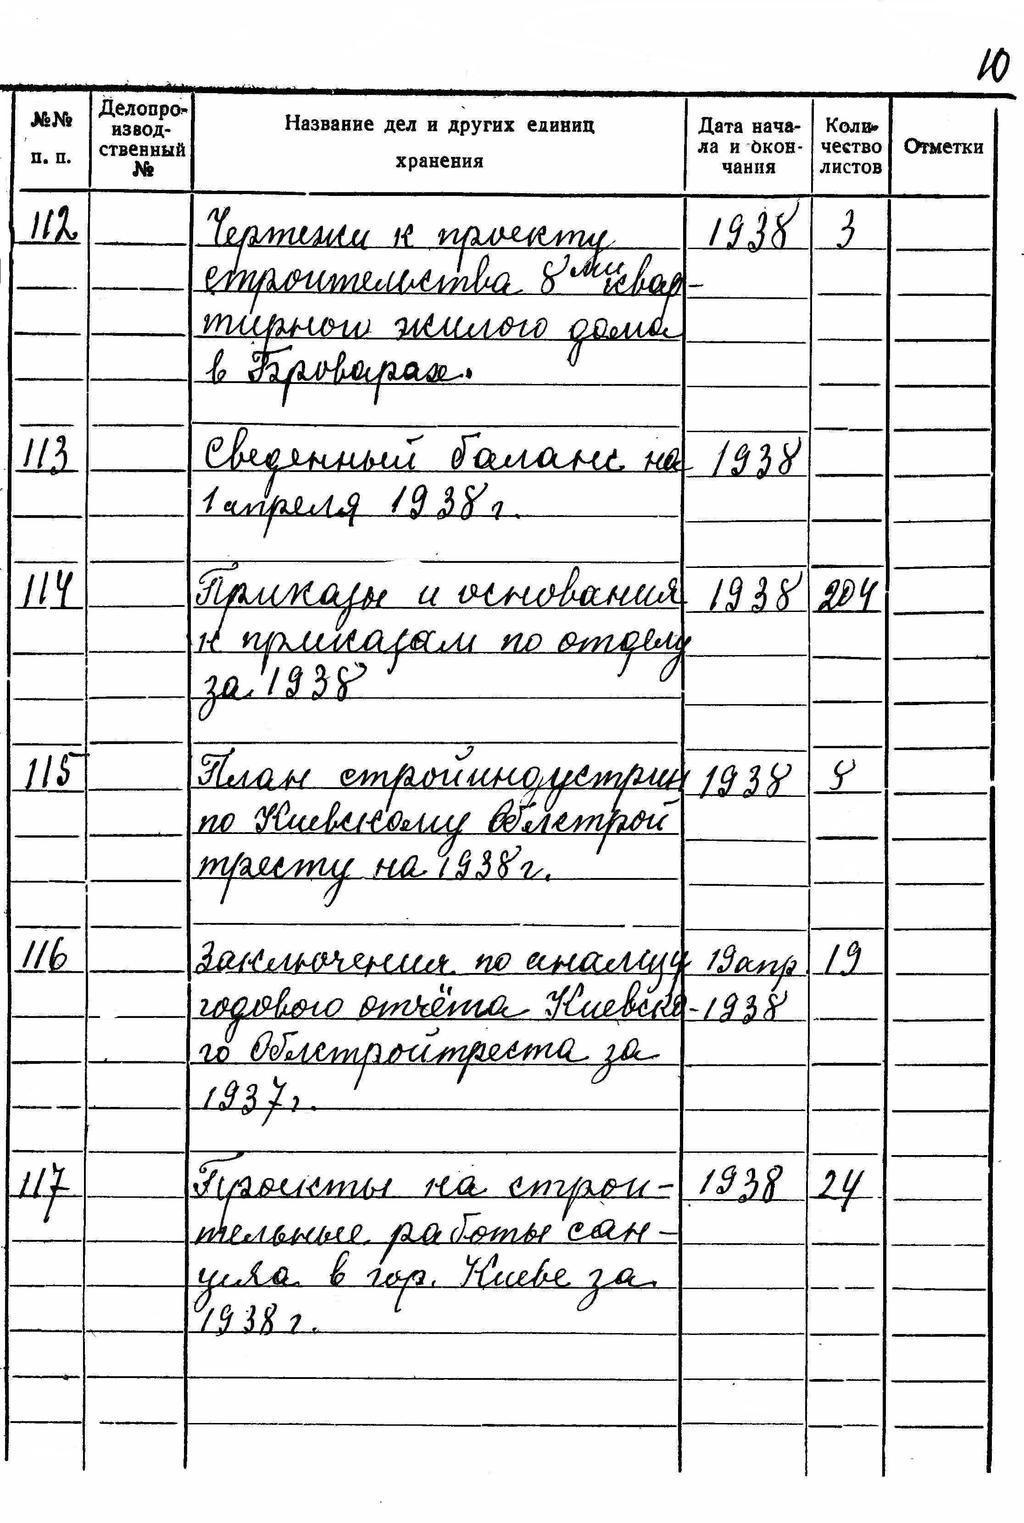 10
№№ п. п. Делопро-изводственный № Название дел и других единиц хранения Дата начала и окончания Количество листов Отметки
112 Чертежи к проекту 1938 3
строительства 8ми квар-
тирного жилого дома
в Броварах.
113 Сведенный баланс на 1938
1 апреля 1938 г.
114 Приказы и основания 1938 204
к приказам по отделу
за 1938
115 План стройиндустрии 1938 8
по Киевскому Облстрой
тресту на 1938 г.
116 Заключения по анализу 19 апр 19
годового отчёта Киевско- 1938
го Облстройтреста за
1937 г.
117 Проекты на строи- 1938 24
тельные работы сан-
узла в гор. Киеве за
1938 г.